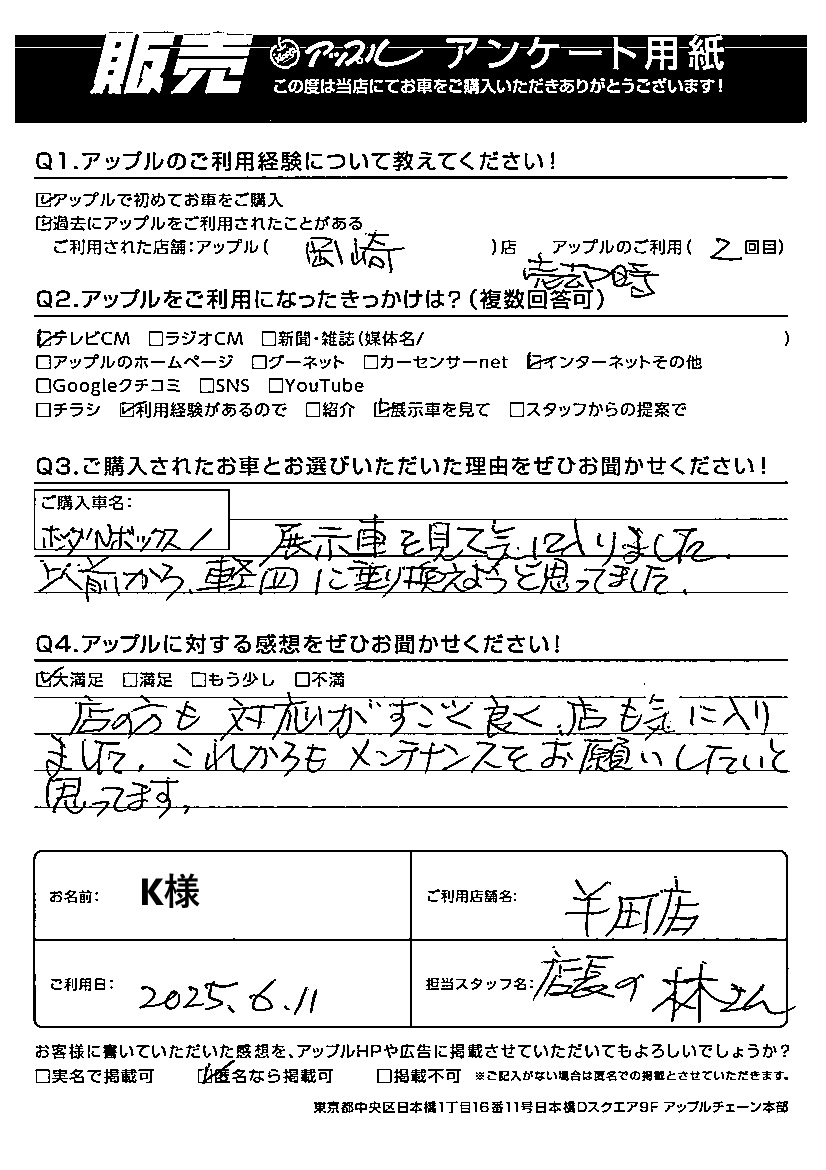 販売 アップル アンケート用紙
この度は当店にてお車をご購入いただきありがとうございます!
Q1.アップルのご利用経験について教えてください!
☑アップルで初めてお車をご購入
☑過去にアップルをご利用されたことがある
ご利用された店舗:アップル( 岡崎 )店 アップルのご利用( 2 回目)
売却時
Q2.アップルをご利用になったきっかけは?(複数回答可)
☑テレビCM □ラジオCM □新聞・雑誌(媒体名/ )
□アップルのホームページ □グーネット □カーセンサーnet ☑インターネットその他
□Googleクチコミ □SNS □YouTube
□チラシ ☑利用経験があるので □紹介 ☑展示車を見て □スタッフからの提案で
Q3.ご購入されたお車とお選びいただいた理由をぜひお聞かせください!
ご購入車名:
ホンダ/Nボックス/ 展示車を見て気に入りました。
以前から、軽四に乗り換えようと思ってました。
Q4.アップルに対する感想をぜひお聞かせください!
☑大満足 □満足 □もう少し □不満
店の方も対応いがすごく良く、店も気に入り
ました。これからもメンテナンスをお願いしたいと
思ってます。
お名前: K様 ご利用店舗名: 半田店
ご利用日: 2025.6.11 担当スタッフ名: 店長の林さん
お客様に書いていただいた感想を、アップルHPや広告に掲載させていただいてもよろしいでしょうか?
□実名で掲載可 ☑匿名なら掲載可 □掲載不可 ※ご記入がない場合は匿名での掲載とさせていただきます。
東京都中央区日本橋1丁目16番11号日本橋Dスクエア9F アップルチェーン本部